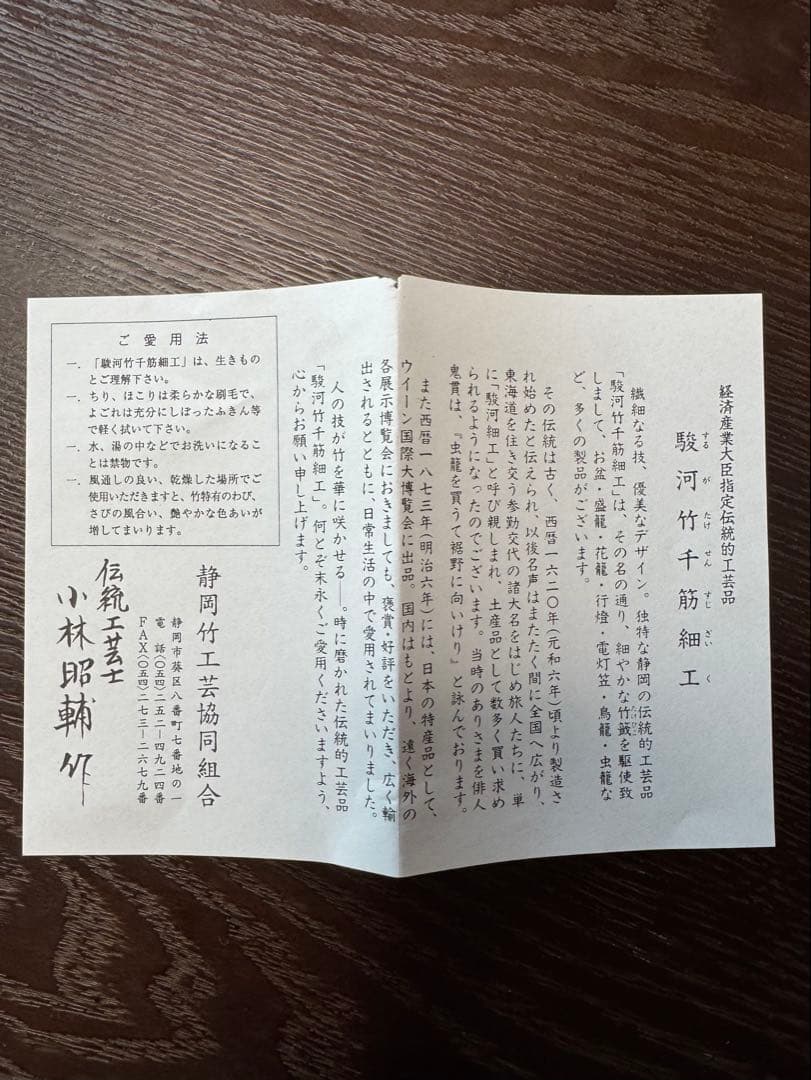 経済産業大臣指定伝統的工芸品
駿河竹千筋細工
するがたけせんすじざいく
繊細なる技、優美なデザイン。独特な静岡の伝統的工芸品
「駿河竹千筋細工」は、その名の通り、細やかな竹籤を駆使致
たけひご
しまして、お盆・盛籠・花籠・行燈・電灯笠・鳥籠・虫籠な
ど、多くの製品がございます。
その伝統は古く、西暦一六二〇年(元和六年)頃より製造さ
れ始めたと伝えられ、以後名声はまたたく間に全国へ広がり、
東海道を往き交う参勤交代の諸大名をはじめ旅人たちに、単
に「駿河細工」と呼び親しまれ、土産品として数多く買い求め
られるようになったのでございます。当時のありさまを俳人
鬼貫は、『虫籠を買うて裾野に向いけり』と詠んでおります。
また西暦一八七三年(明治六年)には、日本の特産品として、
ウイーン国際大博覧会に出品。国内はもとより、遠く海外の
各展示博覧会におきましても、褒賞・好評をいただき、広く輸
出されるとともに、日常生活の中で愛用されてまいりました。
人の技が竹を華に咲かせる――。時に磨かれた伝統的工芸品
「駿河竹千筋細工」。何とぞ末永くご愛用くださいますよう、
心からお願い申し上げます。
ご愛用法
一．「駿河竹千筋細工」は、生きもの
とご理解下さい。
一．ちり、ほこりは柔らかな刷毛で、
よごれは充分にしぼったふきん等
で軽く拭いて下さい。
一．水、湯の中などでお洗いになるこ
とは禁物です。
一．風通しの良い、乾燥した場所でご
使用いただきますと、竹特有のわび、
さびの風合い、艶やかな色あいが
増してまいります。
静岡竹工芸協同組合
静岡市葵区八番町七番地の一
電話(〇五四)二五二－四九二四番
FAX(〇五四)二七三－二六七九番
伝統工芸士
小林昭輔作